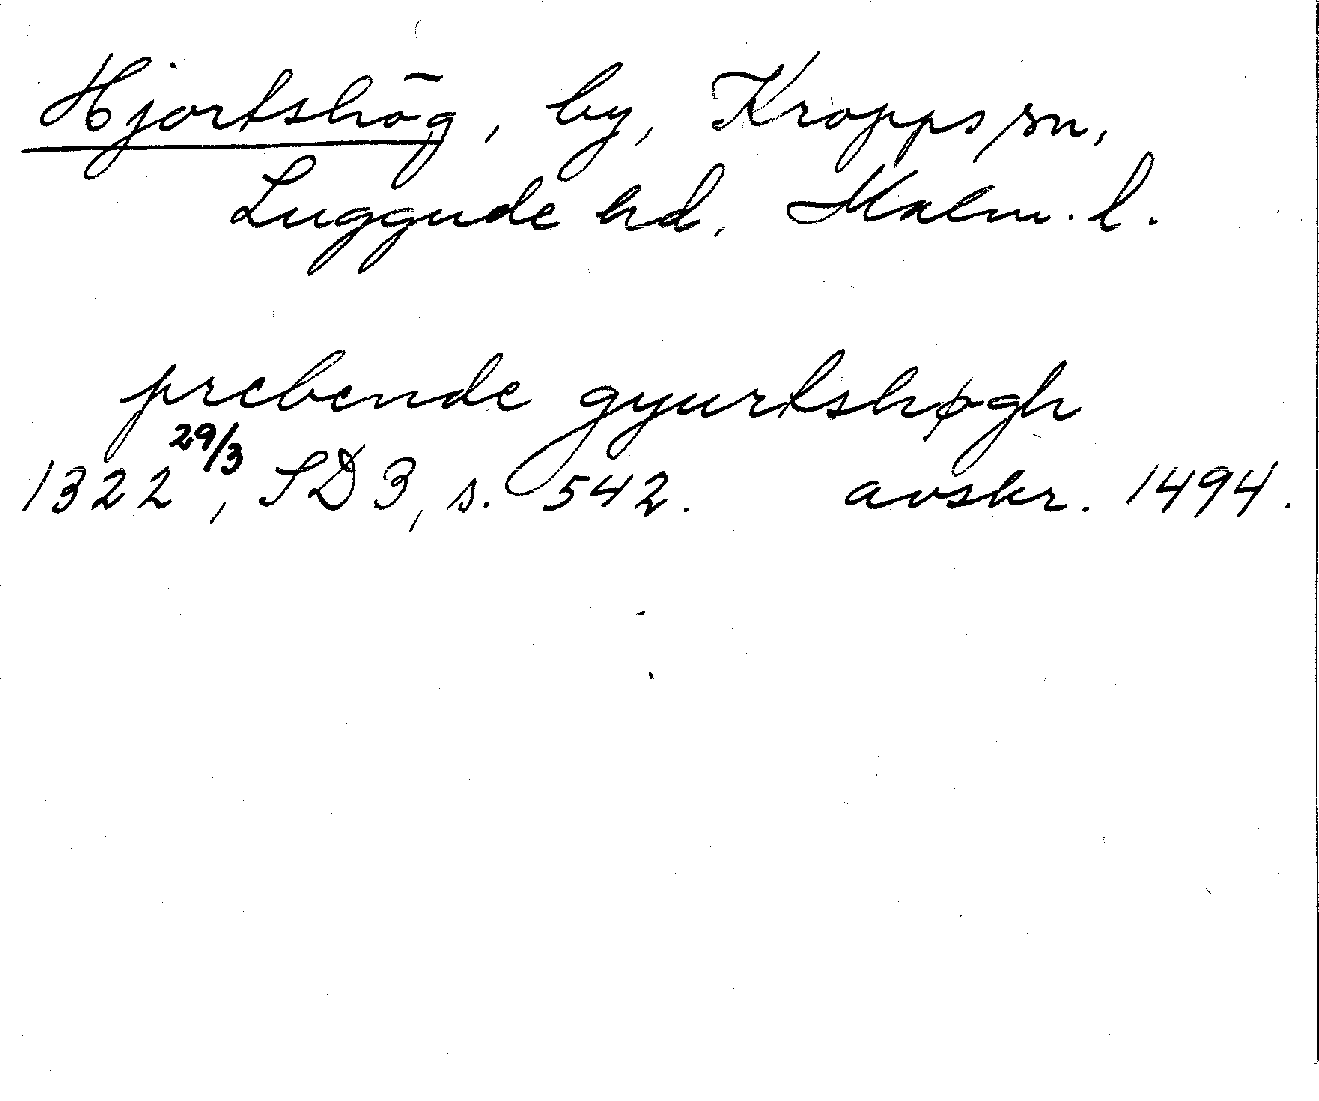 Hjortshög, by, Kropps sn,
Luggude hd. Malm. l.
prebende gyurtshøgh
1322 29/3, SD 3, s. 542. avskr. 1494.